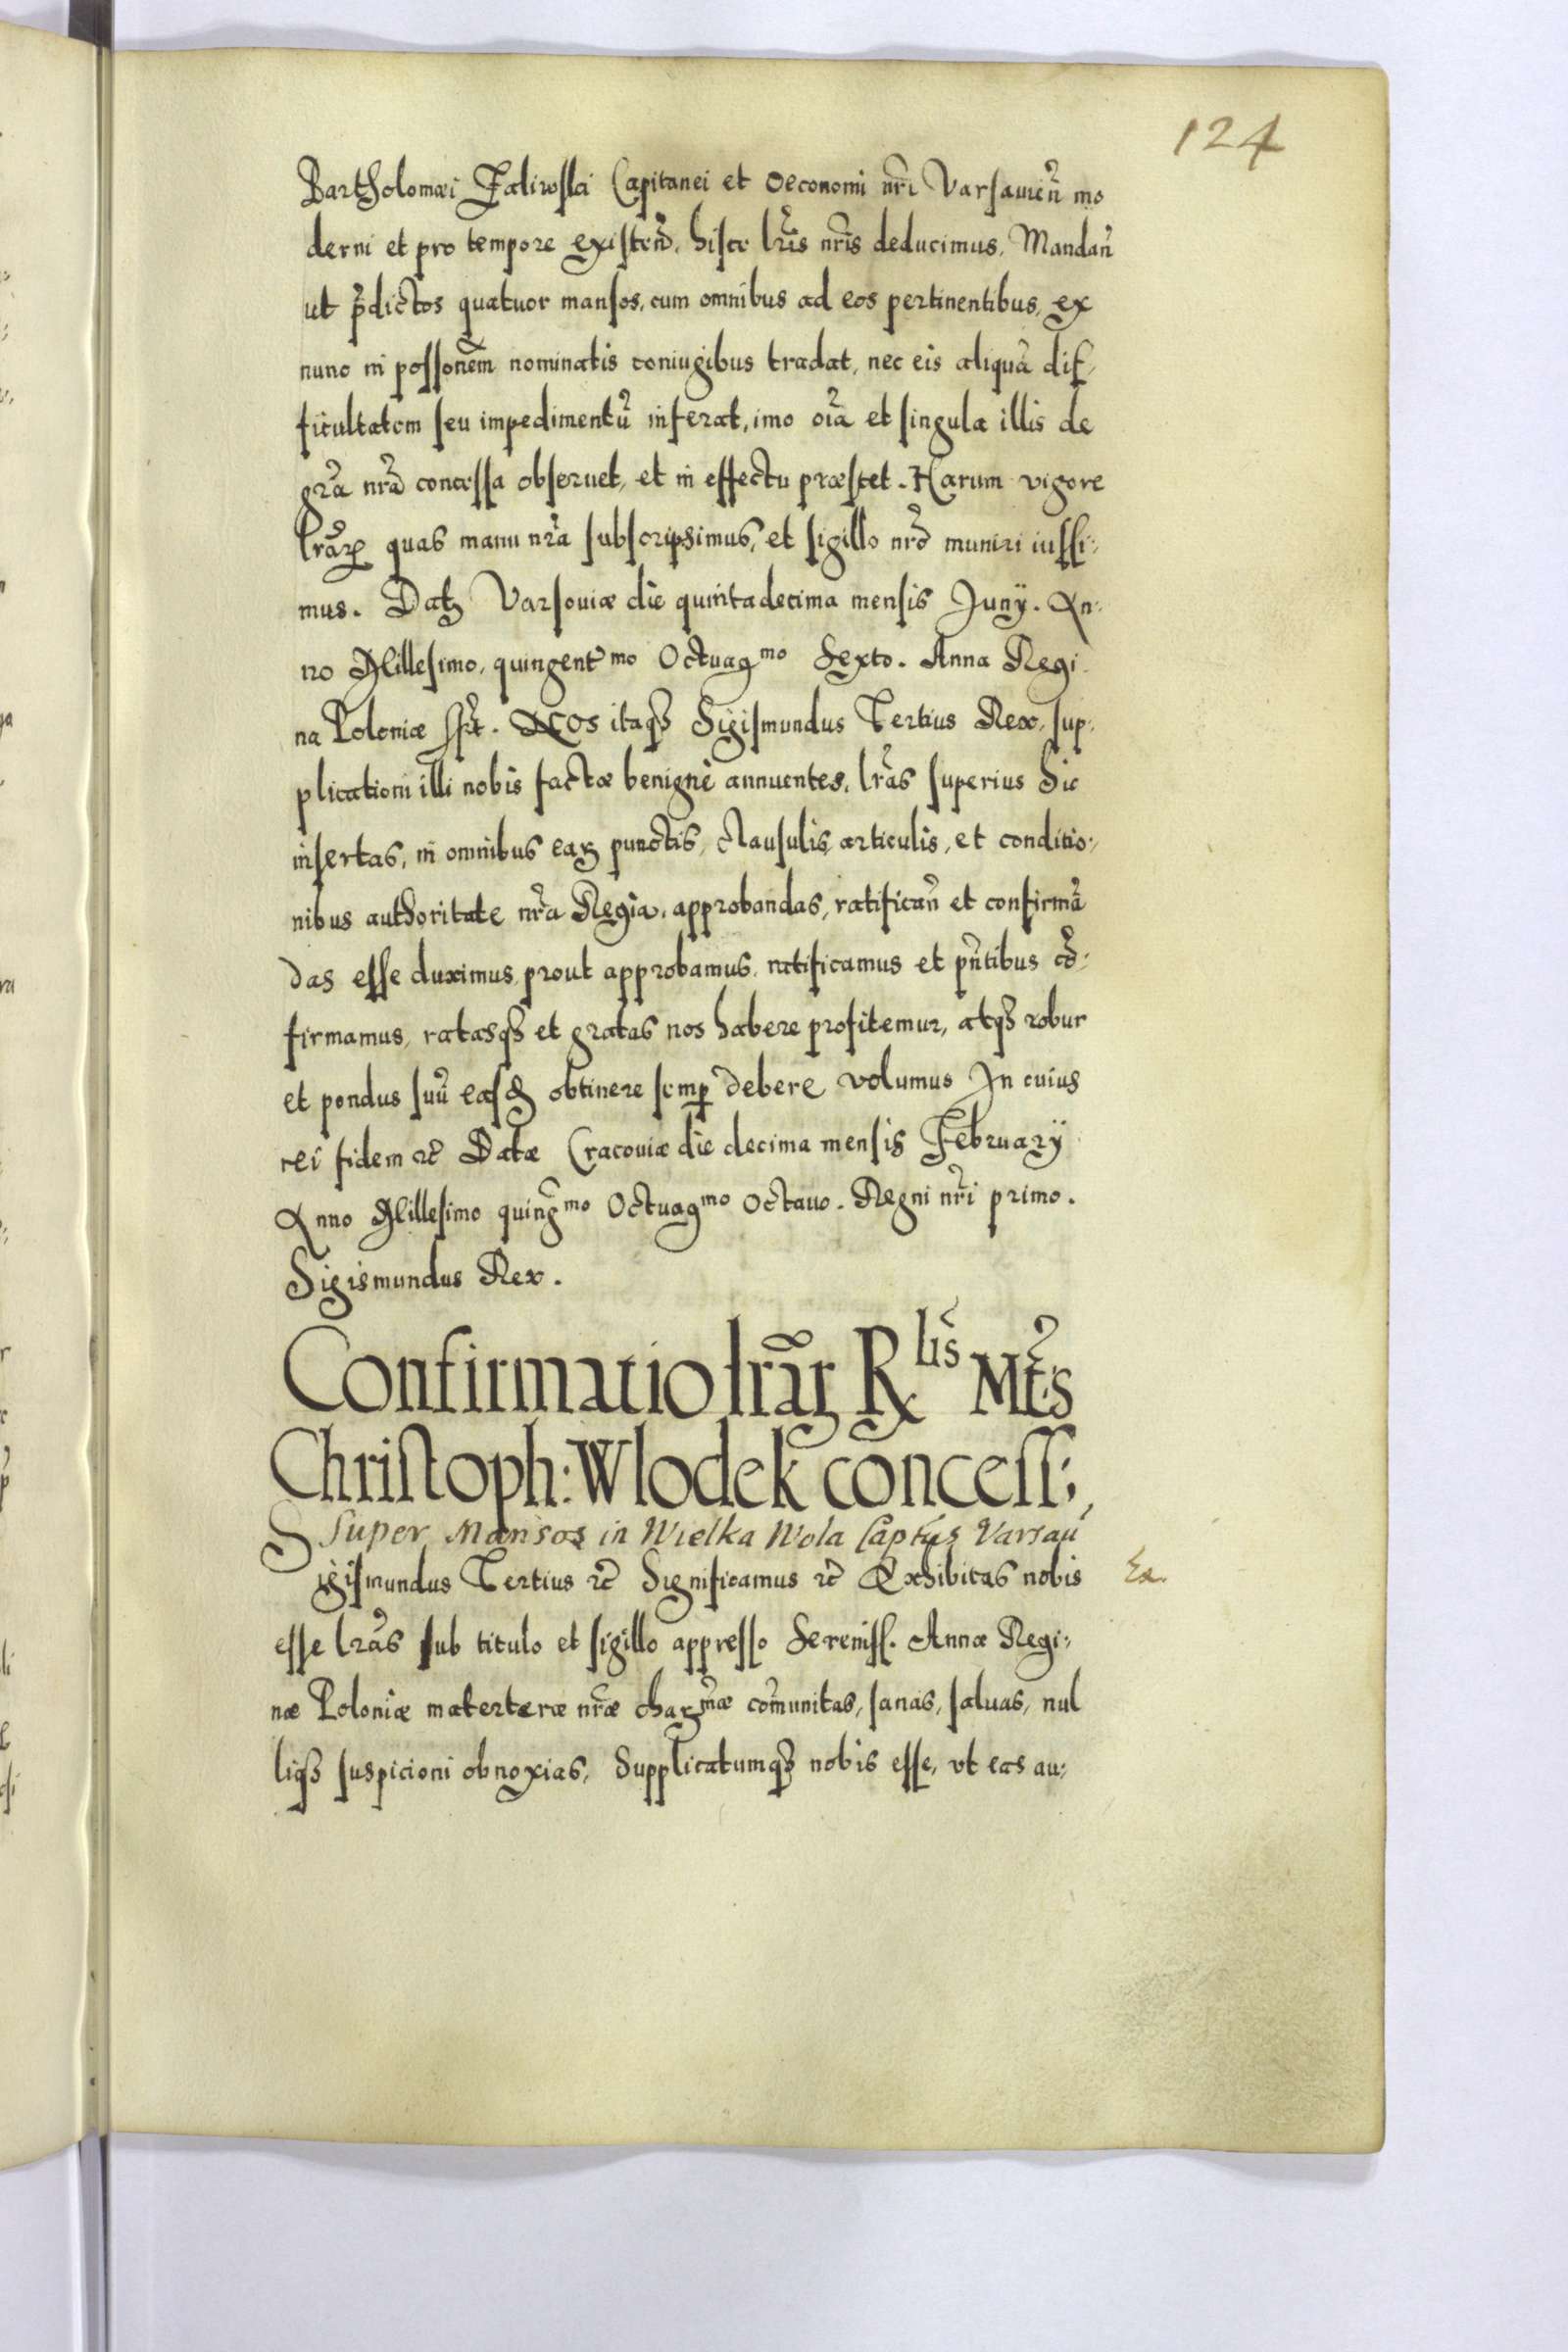 124
Bartholomæi Zaliwski Capitanei et Oeconomi nr̃i Varsavien̄ mo
derni et pro tempore existen̄. hisce lr̃is nr̃is deducimus, Mandan̄
ut p̄dictos quatuor mansos, cum omnibus ad eos pertinentibus, ex
nunc in possonēm nominatis coniugibus tradat, nec eis aliquā dif-
ficultatem seu impedimentū inferat, imo oīa et singula illis de
gr̃a nr̃a concessa obseruet, et in effectu præstet. Harum vigore
lr̃arꝝ quas manu nr̃a subscripsimus, et sigillo nr̃o muniri iussi-
mus. Datꝫ Varsouiæ die quinta decima mensis Junÿ. An-
no Millesimo, quingent mo Octuag mo Sexto. Anna Regi
na Poloniæ sst. Nos itaqꝫ Sigismundus Tertius Rex, sup-
plicationi illi nobis factæ benignè annuentes, lr̃as superius hic
insertas, in omnibus earꝝ punctis, clausulis, articulis, et conditio-
nibus authoritate nr̃a Regia, approbandas, ratifican̄ et confirmā
das esse duximus, prout approbamus, ratificamus et pn̄tibus cō-
firmamus, ratasqꝫ et gratas nos habere profitemur, atqꝫ robur
et pondus suū easdꝫ obtinere semꝑ debere volumus In cuius
rei fidem ꝛc̄ Datæ Cracouiæ die decima mensis Februarÿ
Anno Millesimo quing mo Octuag mo Octauo. Regni nr̃i primo.
Sigismundus Rex.
Confirmatio lr̃arꝝ R lis Mt̄is
Christoph: Wlodek concess:
Super Mansos in Wielka Wola Captus Varsaū
Sigismundus Tertius ꝛc̄ Significamus ꝛc̄ Exhibitas nobis
Ex.
esse lr̃as sub titulo et sigillo appresso Sereniss. Annæ Regi-
næ Poloniæ materteræ nr̃æ charꝫmæ com̄unitas, sanas, saluas, nul
liqꝫ suspicioni obnoxias, Supplicatumqꝫ nobis esse, vt eas au-